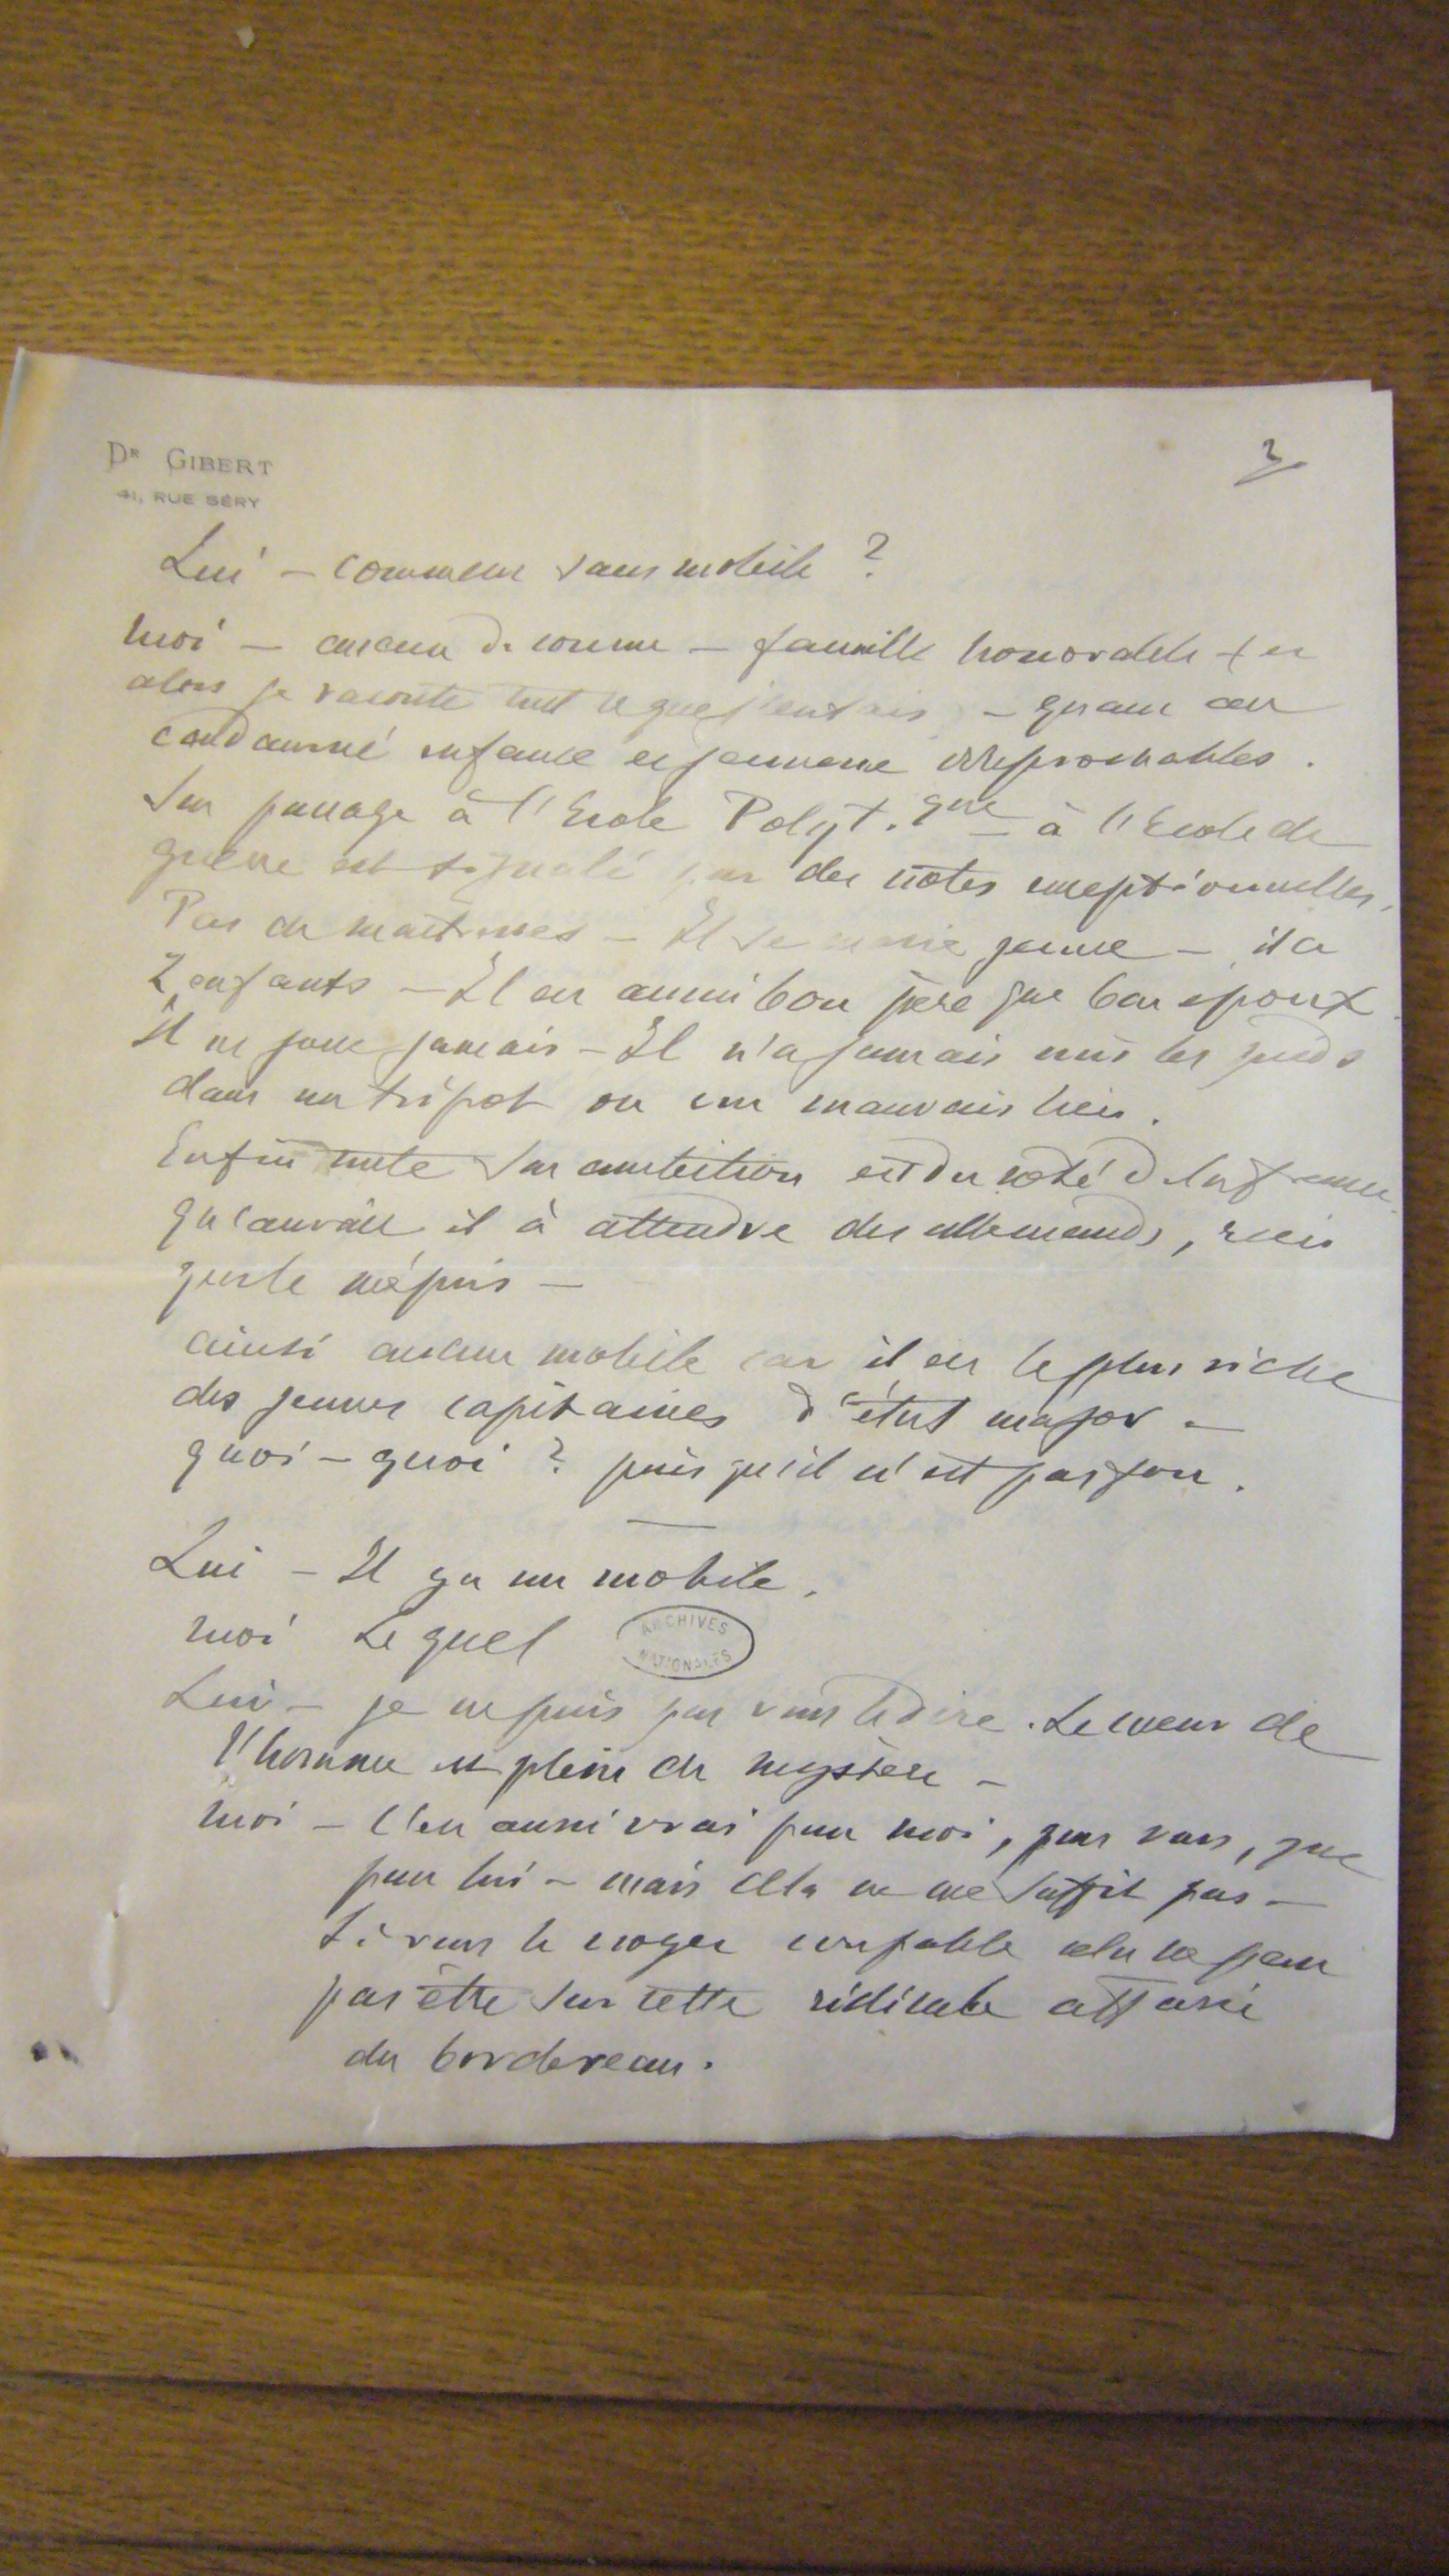 Dr GIBERT
41, RUE SÉRY
3
Lui – Comment sans mobile ?
Moi – aucun de connu – famille honorable + et
alors je raconte tout ce que j'entais – quant au
condamné enfance et jeunesse irréprochables.
Son passage à l'Ecole Polyt.que – à l'Ecole de
guerre est signalé par des notes exceptionnelles.
Pas de maitresses – Il se marie jeune – il a
2 enfants – Il est aussi bon père que bon époux.
Il ne joue jamais – Il n'a jamais mis les pieds
dans un tripot ou un mauvais lieu.
Enfin toute son ambition est du coté de la france
qu'aurait il à attendre des allemands, rien
que le mépris –
ainsi aucun mobile car il est le plus riche
des jeunes capitaines d'état major –
quoi – quoi ? puisqu'il n'est pas fou.
Lui – Il y a un mobile.
moi Lequel
ARCHIVES
NATIONALES
Lui – je ne puis pas vous le dire. Le cœur de
l'homme est plein de mystère –
Moi – C'est aussi vrai pour moi, pour vous, que
pour lui – mais cela ne me suffit pas –
Si vous le croyez coupable cela ne peut
pas être sur cette ridicule affaire
du bordereau.